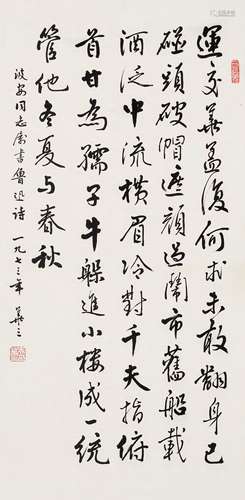 運交華蓋復何求未敢翻身已
碰頭破帽遮顏過鬧市舊船載
酒泛中流橫眉冷對千夫指俯
首甘為孺子牛躲進小樓成一統
管他冬夏与春秋
波安同志屬書魯迅詩 一九七三年